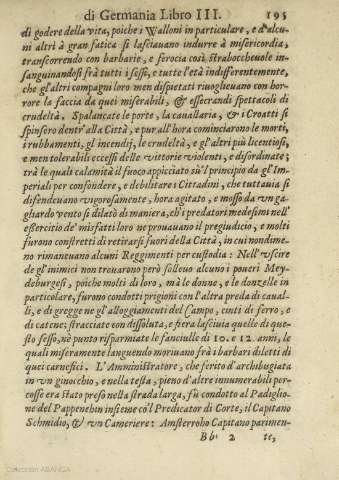 di Germania Libro III. 195
di godere della vita, poiche i Walloni in particulare, e d'alcu-
ni altri à gran fatica si lasciauano indurre à misericordia,
transcorrendo con barbarie, e ferocia così straboccheuole in-
sanguinandosi frà tutti i sessi, e tutte l'età indifferentemente,
che gl'altri compagni loro men dispietati riuoglieuano con hor-
rore la faccia da quei miserabili, & essecrandi spettacoli di
crudeltà. Spalancate le porte, la cauallaria, & i Croatti si
spinsero dentr'alla Città, e pur all'hora cominciarono le morti,
i rubbamenti, gl'incendij, le crudeltà, e gl'altri più licentiosi,
e men tolerabili eccessi delle vittorie violenti, e disordinate;
trà le quali calamità il fuoco appicciato sù'l principio da gl'Im-
periali per confondere, e debilitare i Cittadini, che tuttauia si
difendeuano vigorosamente, hora agitato, e mosso da vn ga-
gliardo vento si dilatò di maniera, ch'i predatori medesimi nell'
essercitio de' misfatti loro ne prouauano il pregiudicio, e molti
furono constretti di retirarsi fuori della Città, in cui nondime-
no rimaneuano alcuni Reggimenti per custodia: Nell'vscire
de gl'inimici non trouarono però solleuo alcuno i poueri Mey-
deburgesi, poiche molti di loro, mà le donne, e le donzelle in
particolare, furono condotti prigioni con l'altra preda di caual-
li, e di gregge ne gl'alloggiamenti del Campo, cinti di ferro, e
di catene; stracciate con dissoluta, e fiera lasciuia quelle di que-
sto sesso, nè punto risparmiate le fanciulle di 10. e 12. anni, le
quali miseramente languendo moriuano frà i barbari diletti di
quei carnefici. L'Amministratore, che ferito d'archibugiata
in vn ginocchio, e nella testa, pieno d'altre innumerabili per-
cosse era stato preso nella strada larga, fù condotto al Padiglio-
ne del Pappenehin insieme co'l Predicator di Corte, il Capitano
Schmidio, & vn Cameriere: Amsterroho Capitano parimen-
Bb 2 te,
Colección ABANCA